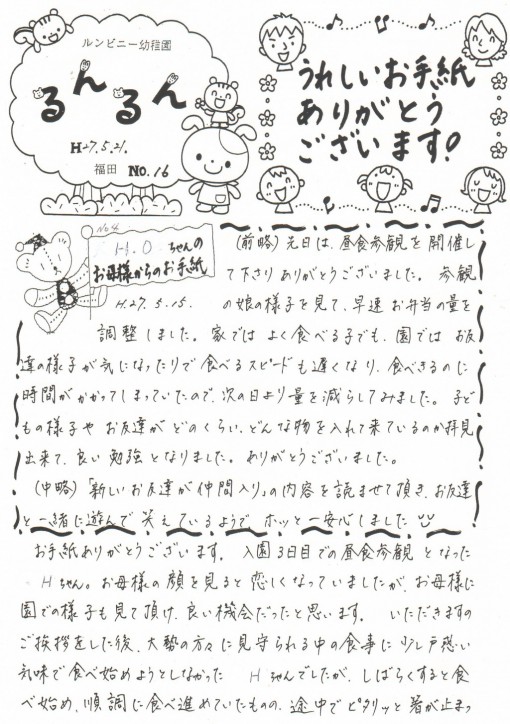 ルンビニー幼稚園
るんるん
H27.5.21.
福田 No.16
うれしいお手紙
ありがとう
ございます!
No.4
H.O ちゃんの
お母様からのお手紙
H.27.5.15.
(前略) 先日は、昼食参観を開催し
て下さりありがとうございました。 参観
の娘の様子を見て、早速お弁当の量を
調整しました。家ではよく食べる子でも、園ではお友
達の様子が気になったりで食べるスピードも遅くなり、食べきるのに
時間がかかってしまっていたので、次の日より量を減らしてみました。子ど
もの様子やお友達がどのくらい、どんな物を入れて来ているのか拝見
出来て、良い勉強となりました。ありがとうございました。
(中略)「新しいお友達が仲間入り」の内容を読ませて頂き、お友達
と一緒に遊んで笑えているようで、ホッと一安心しました
お手紙ありがとうございます。入園3日目での昼食参観となった
Hちゃん。お母様の顔を見ると恋しくなっていましたが、お母様に
園での様子も見て頂け、良い機会だったと思います。 いただきますの
ご挨拶をした後、大勢の方々に見守られる中の食事に少し戸惑い
気味で食べ始めようとしなかった Hちゃんでしたが、しばらくすると食
べ始め、順調に食べ進めていたものの、途中でピタリッと箸が止まっ